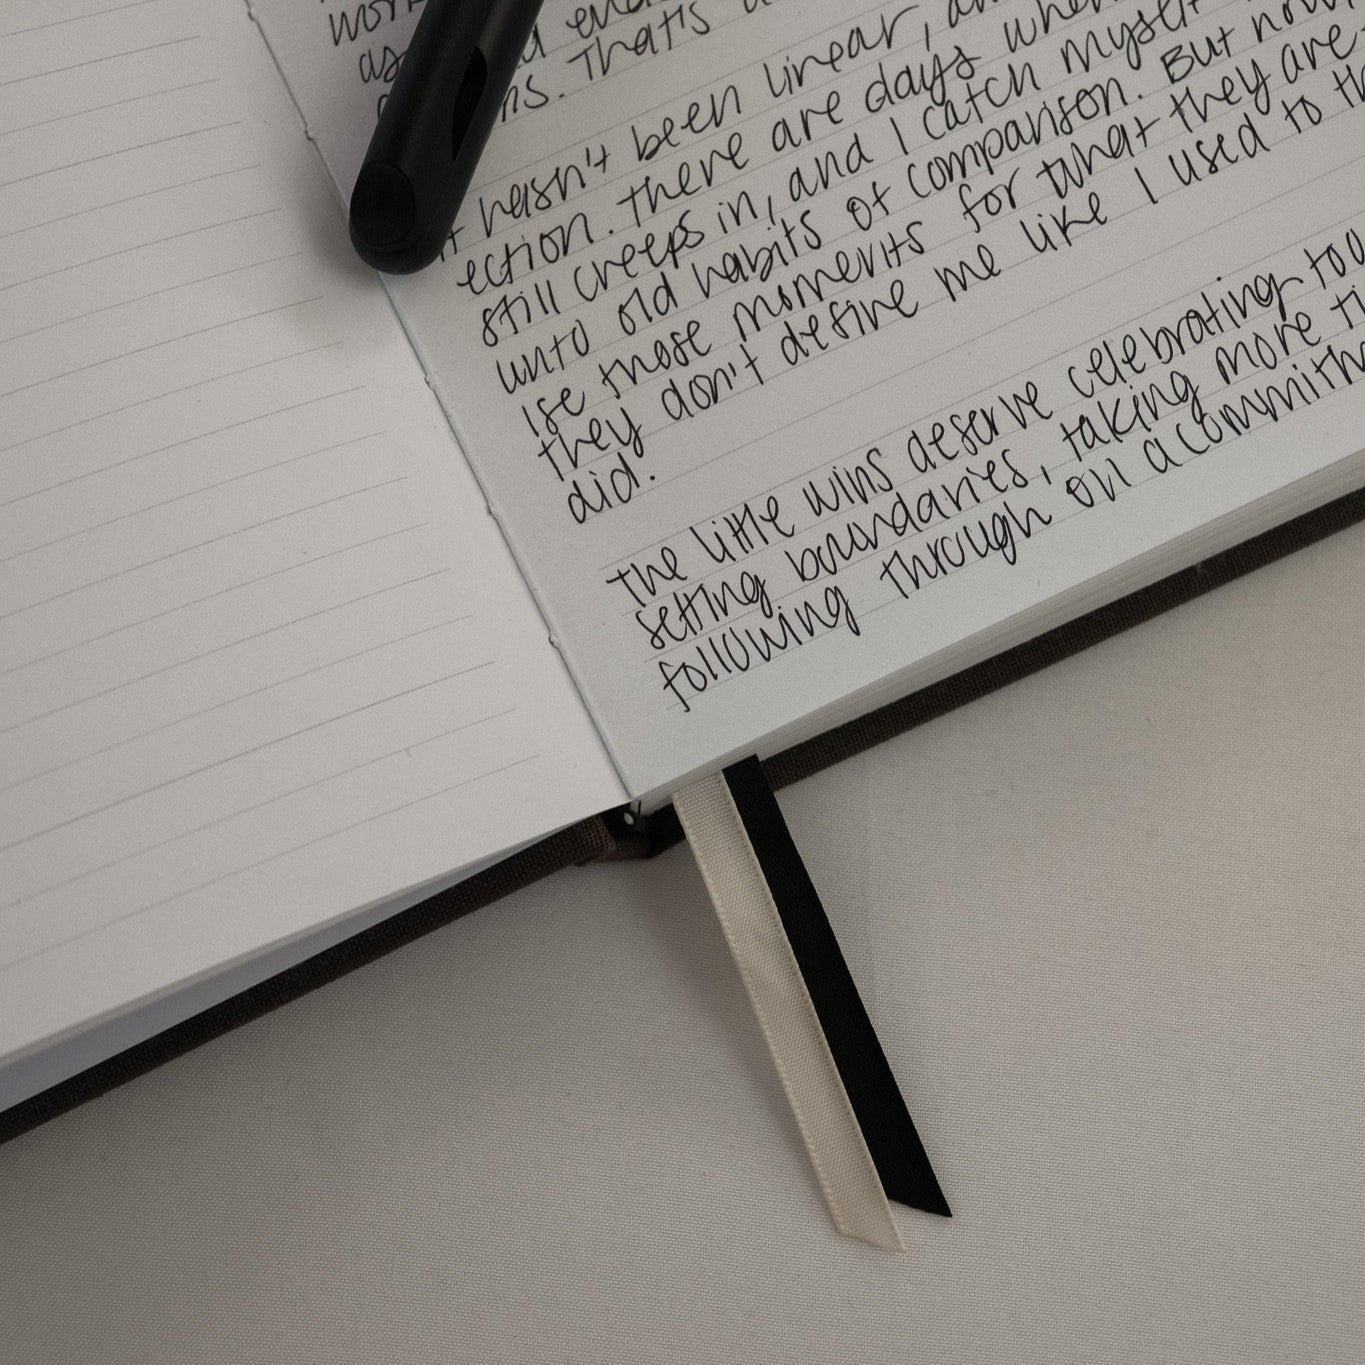 as
ns. That's
hasn't been linear, an
ection. There are days when
still creeps in, and I catch myself
unto old habits of comparison. But now,
ise those moments for what they are.
they don't desire me like I used to th
did.
The little wins deserve celebrating too
setting boundaries, taking more ti
following through on a commitm